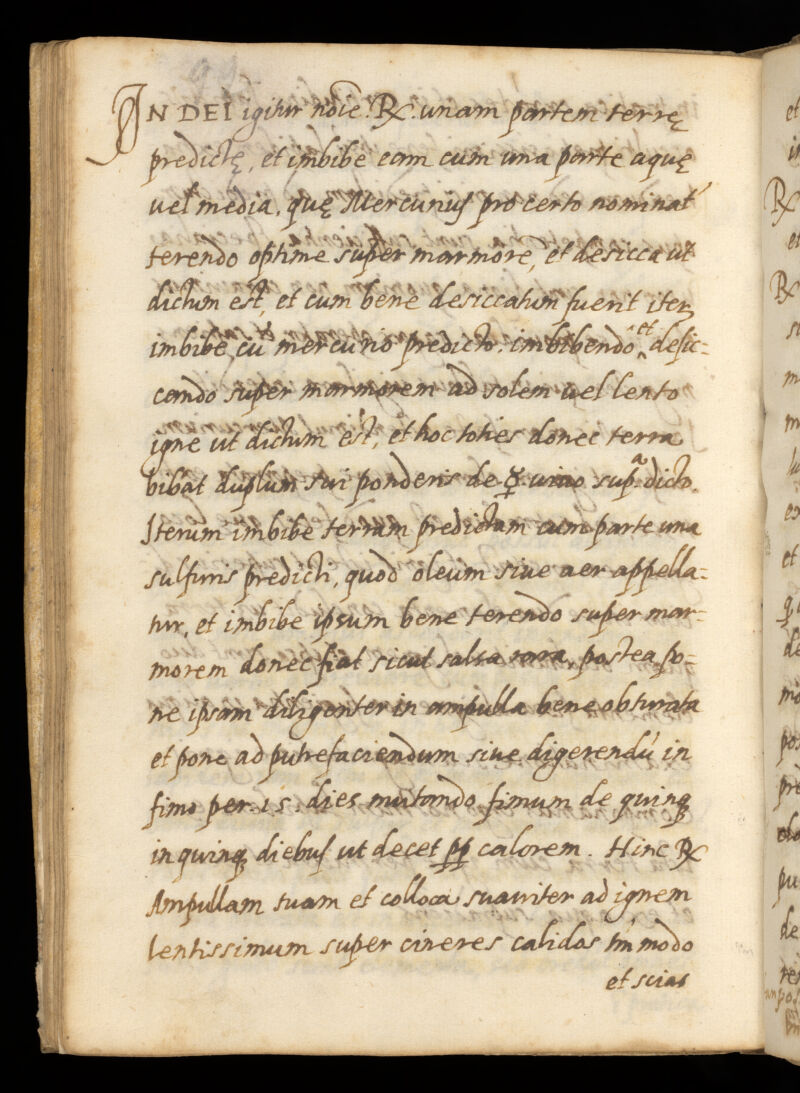 IN DEI igitur nōie. ℞. unam partem terrę
predictę, et imbibe eam cum una parte aquę
uel media, quę Mercurius pro certo nominat'
terendo optime super marmore, et desicca ut
dictum est, et cum bene desiccatum fuerit iter
imbibe cū mercurio predicto. imbibendo ^et desic=
cando super marmorem ad solem uel lento
igne ut dictum est, et hoc toties donec terra
bibat duplum sui ponderis de ☿ uiuo supᵃ dicto.
Iterum imbibe terram predictam cum parte una
sulfuris predicti, quod oleum siue aer appella=
tur, et imbibe ipsum bene terendo super mar=
morem donec fiat sicut salsa rara, postea po=
ne ipsam diligenter in ampulla bene obturata
et pone ad putrefaciendum siue digerendū in
fimo per .15. dies mutando fimum de quinq;
in quinq; diebus ut decet pp calorem. Hinc ℞
Ampullam tuam et colloca suauiter ad ignem
lentissimum super cineres calidos tm̄ modo
et scias
et
℞
et
℞
m
m
et
de
mo
pos
pre
pu
de